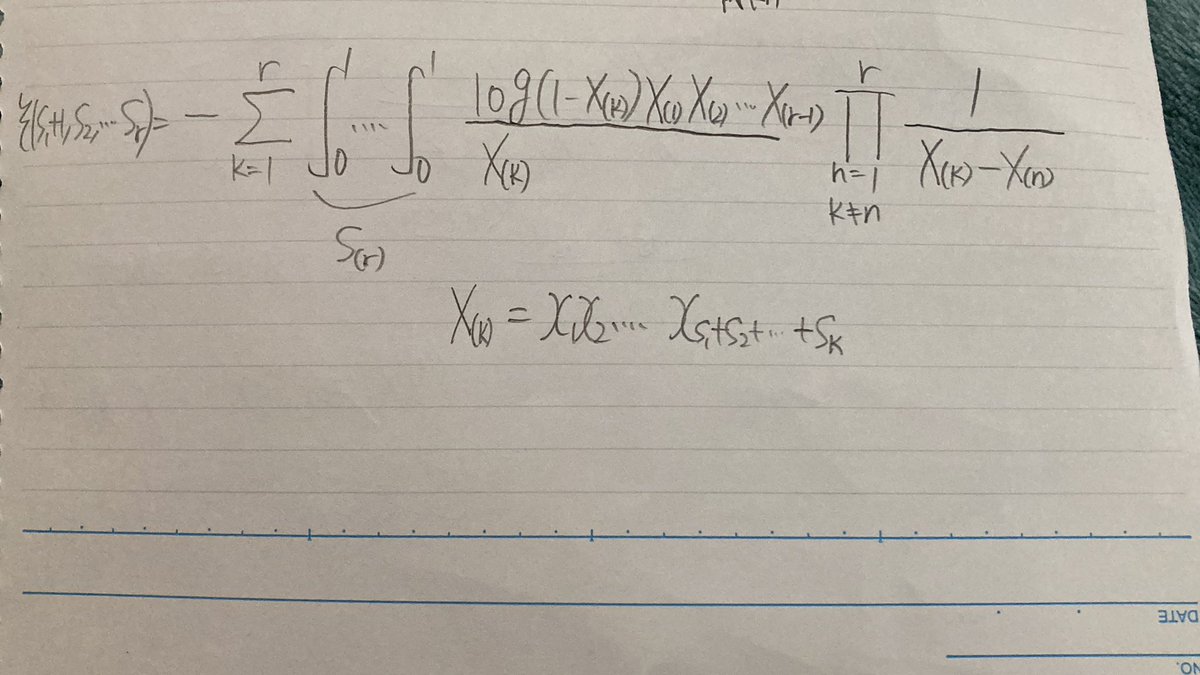 ξ(s₁+1, s₂, … sᵣ) = − Σ_{k=1}^{r} ∫₀¹ ⋯ ∫₀¹ (log(1−X₍ₖ₎) X₍₁₎ X₍₂₎ ⋯ X₍ᵣ₋₁₎ / X₍ₖ₎) ∏_{n=1, k≠n}^{r} 1 / (X₍ₖ₎ − X₍ₙ₎)
S₍ᵣ₎
X₍ₖ₎ = x₁x₂ ⋯ x_{s₁+s₂+⋯+sₖ}
DATE
NO.